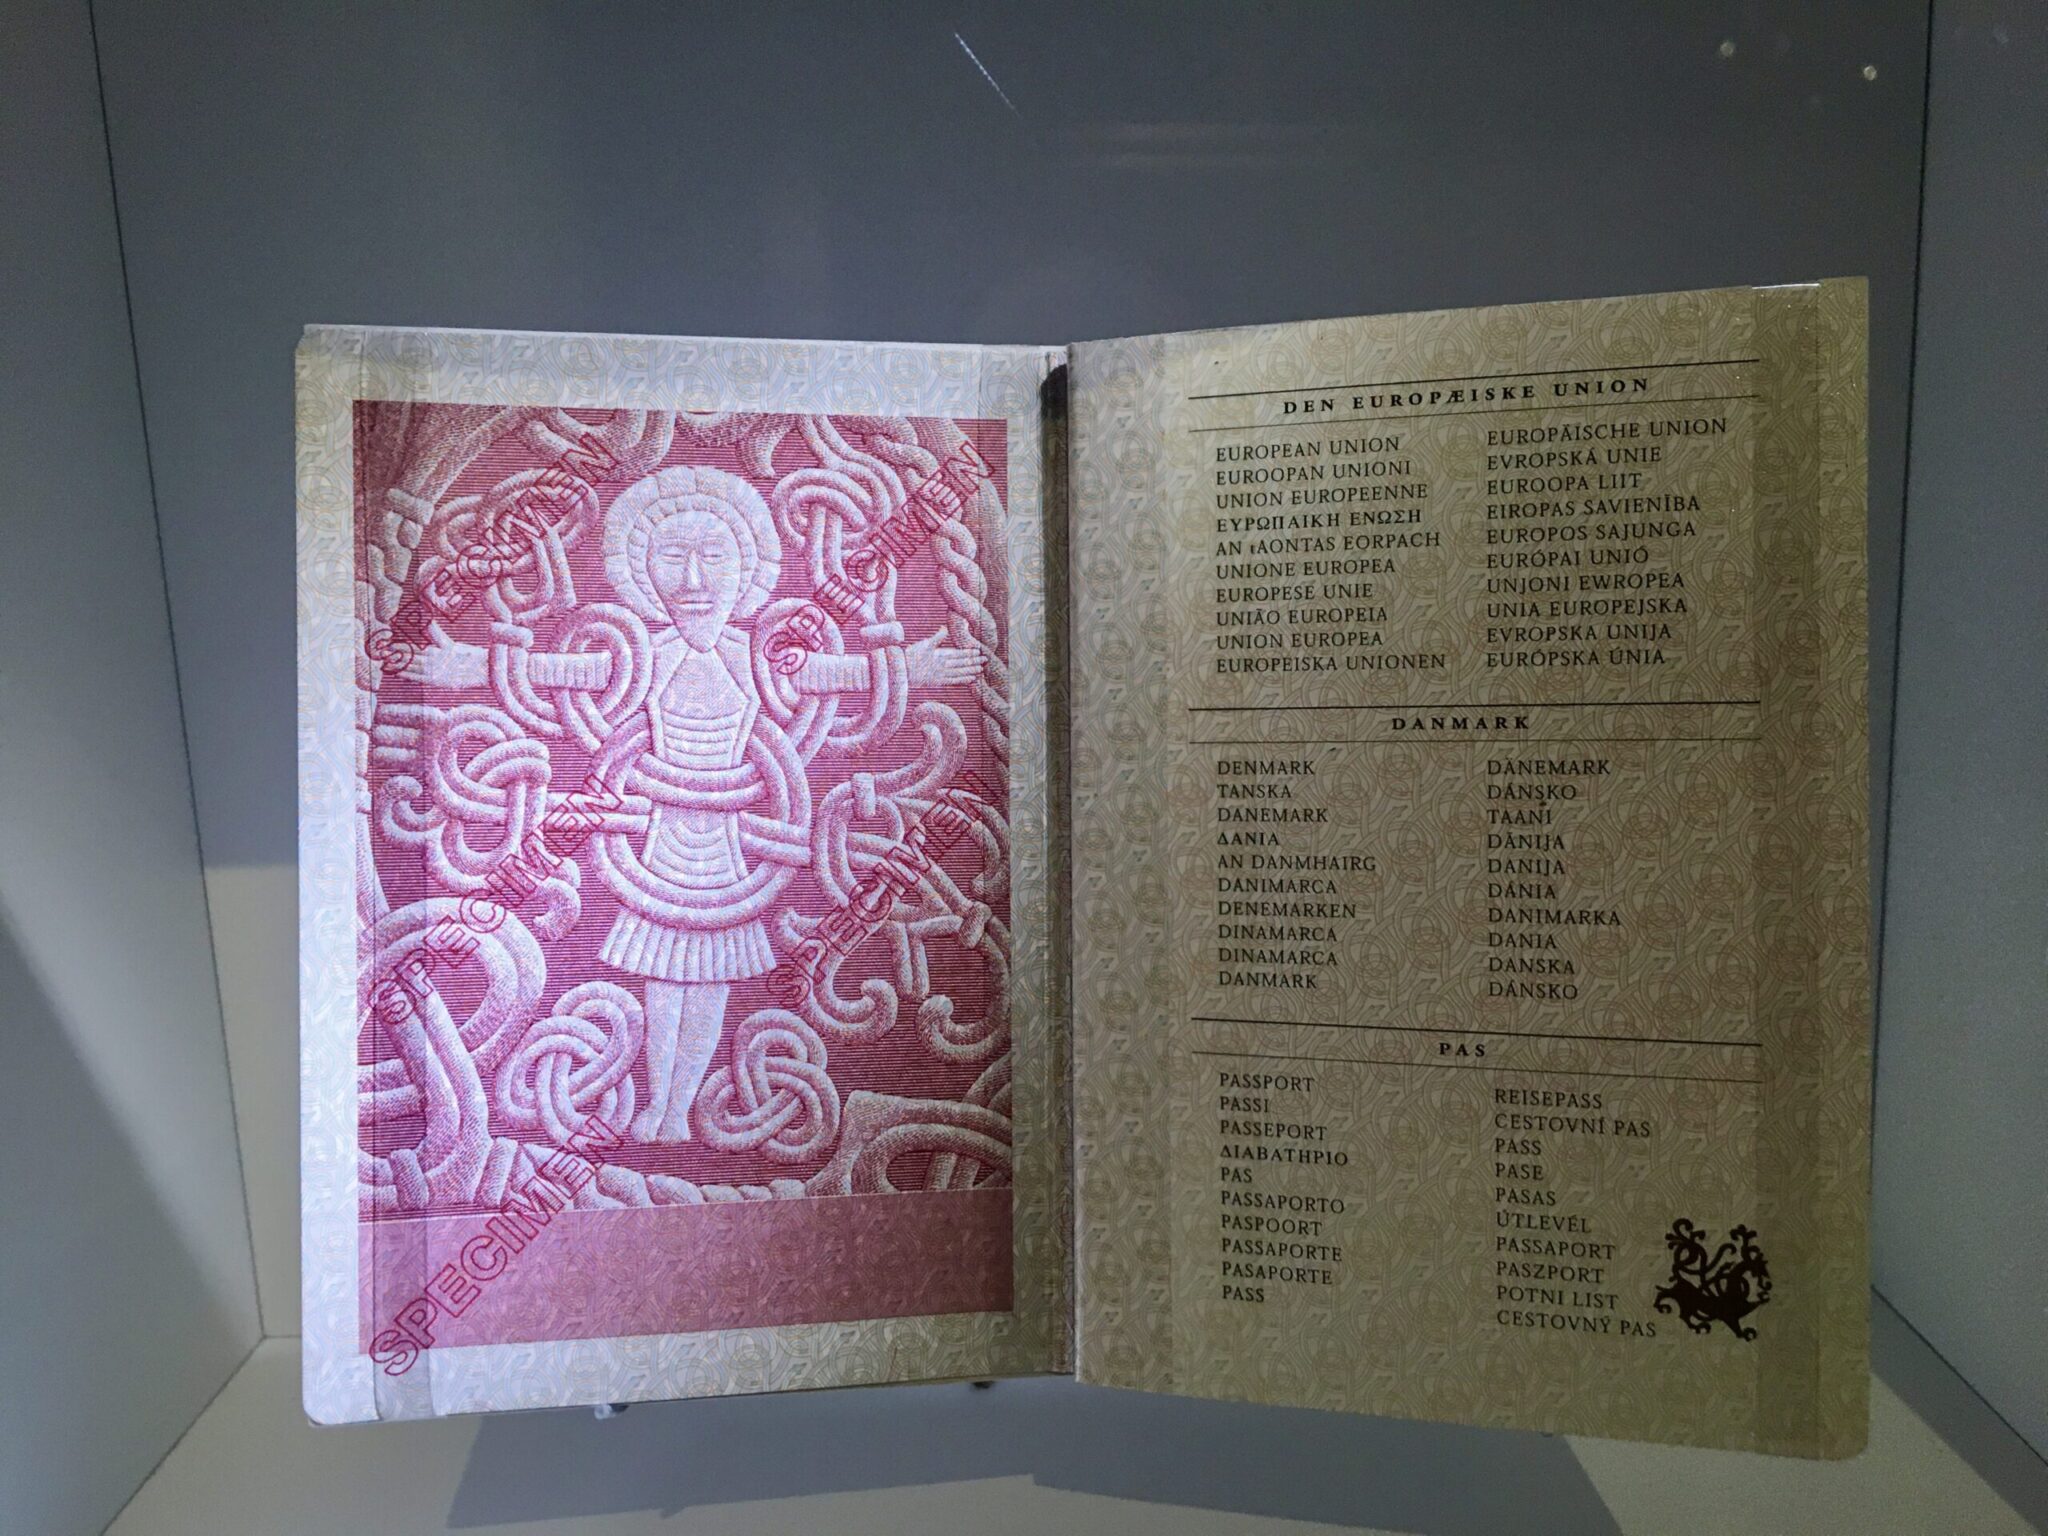 SPECIMEN
SPECIMEN
SPECIMEN
SPECIMEN
SPECIMEN
DEN EUROPÆISKE UNION
EUROPEAN UNION
EUROOPAN UNIONI
UNION EUROPEENNE
ΕΥΡΩΠΑΙΚΗ ΕΝΩΣΗ
AN tAONTAS EORPACH
UNIONE EUROPEA
EUROPESE UNIE
UNIÃO EUROPEIA
UNION EUROPEA
EUROPEISKA UNIONEN
EUROPÄISCHE UNION
EVROPSKÁ UNIE
EUROOPA LIIT
EIROPAS SAVIENĪBA
EUROPOS SAJUNGA
EURÓPAI UNIÓ
UNJONI EWROPEA
UNIA EUROPEJSKA
EVROPSKA UNIJA
EURÓPSKA ÚNIA
DANMARK
DENMARK
TANSKA
DANEMARK
ΔΑΝΙΑ
AN DANMHAIRG
DANIMARCA
DENEMARKEN
DINAMARCA
DINAMARCA
DANMARK
DÄNEMARK
DÁNSKO
TAANI
DĀNIJA
DANIJA
DÁNIA
DANIMARKA
DANIA
DANSKA
DÁNSKO
PAS
PASSPORT
PASSI
PASSEPORT
ΔΙΑΒΑΤΗΡΙΟ
PAS
PASSAPORTO
PASPOORT
PASSAPORTE
PASAPORTE
PASS
REISEPASS
CESTOVNÍ PAS
PASS
PASE
PASAS
ÚTLEVÉL
PASSAPORT
PASZPORT
POTNI LIST
CESTOVNÝ PAS